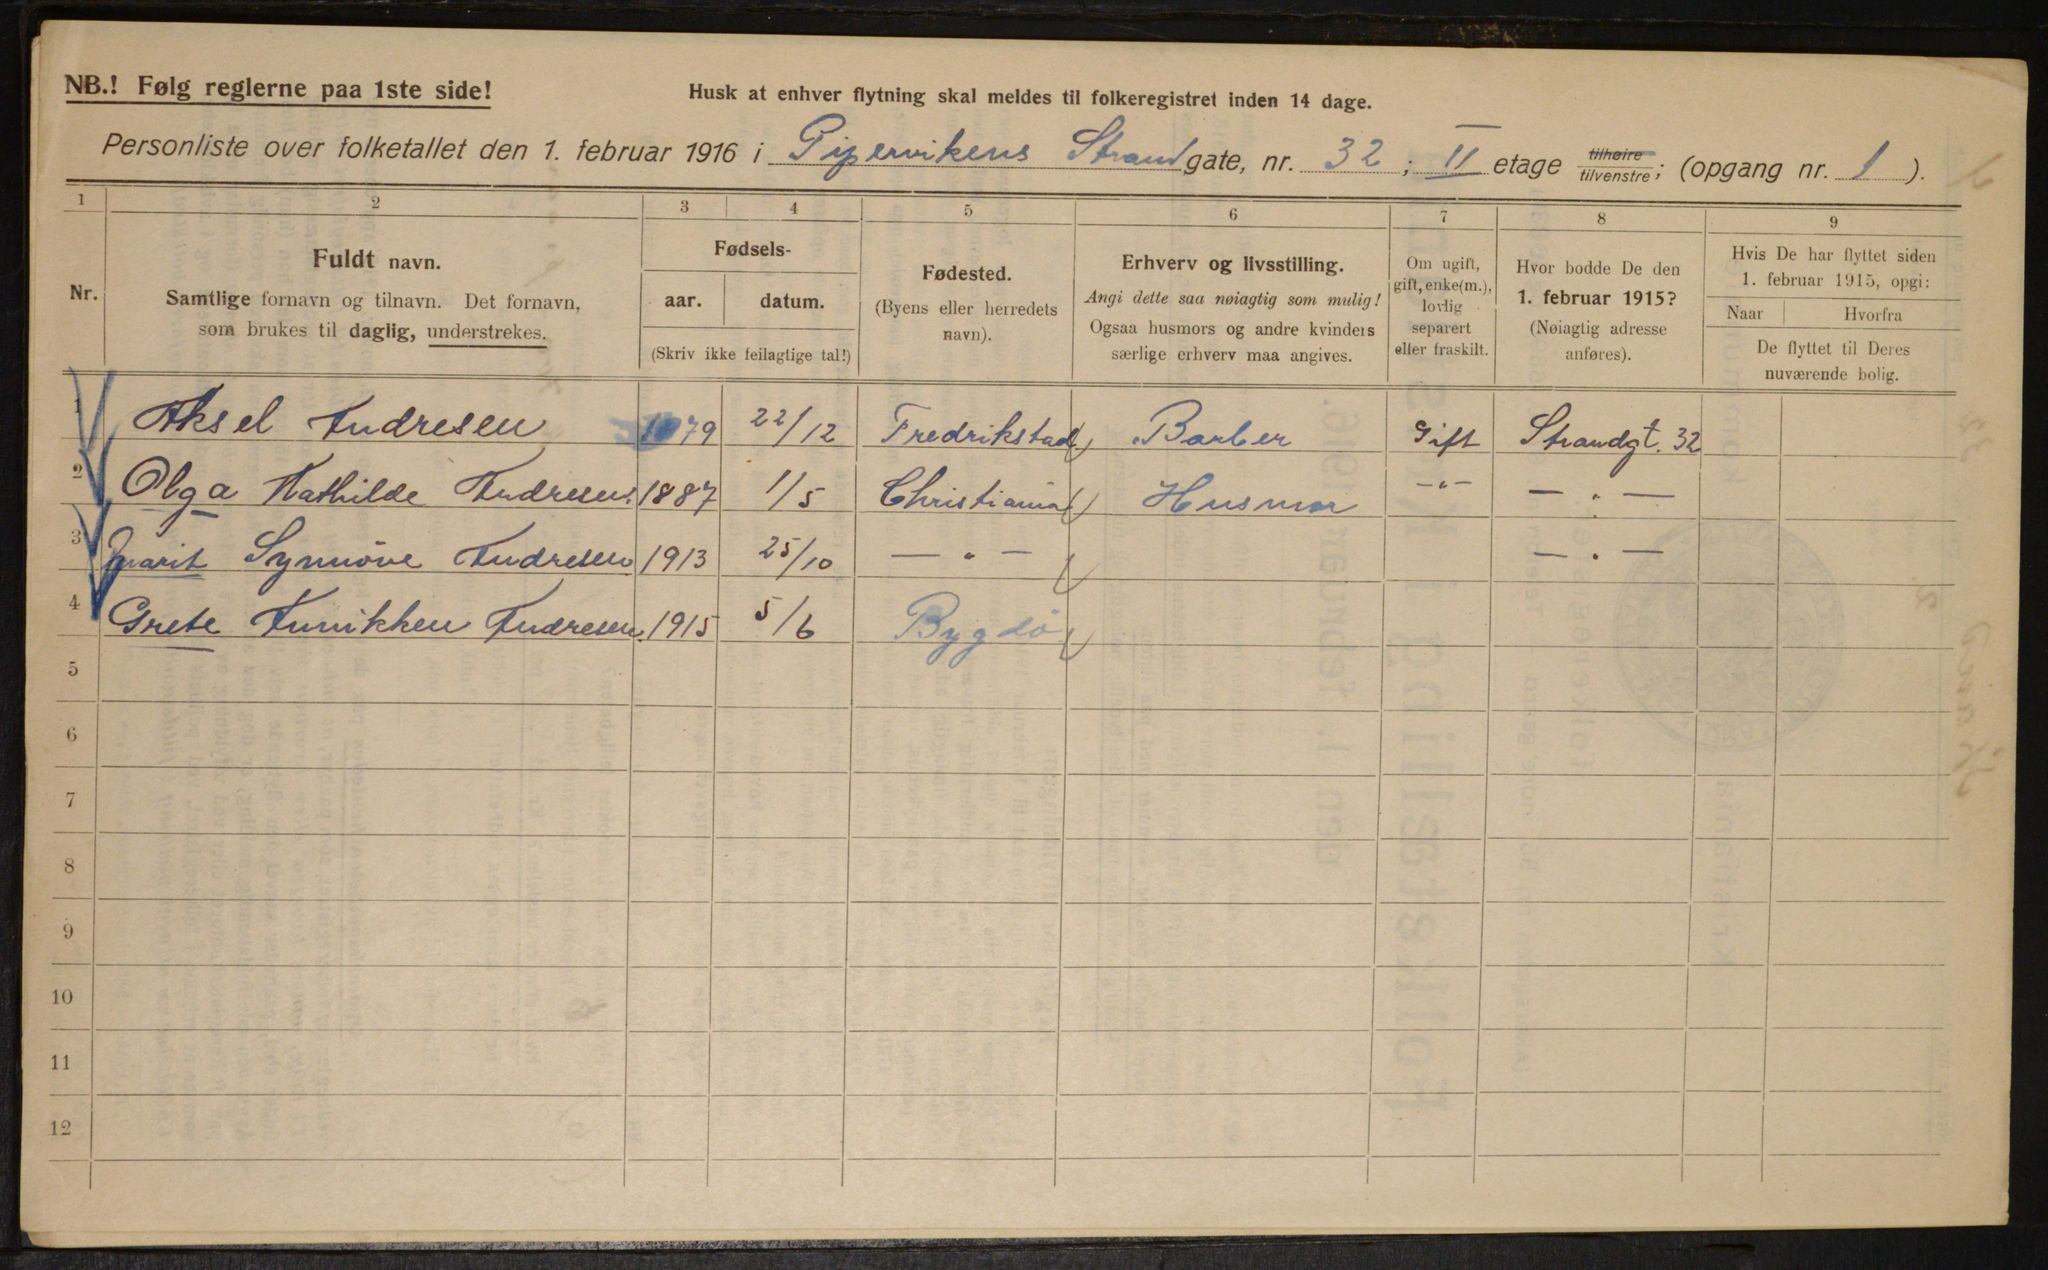 NB.! Følg reglerne paa 1ste side!
Husk at enhver flytning skal meldes til folkeregistret inden 14 dage.
Personliste over folketallet den 1. februar 1916 i Pipervikens Strand gate, nr. 32 ; II etage tilhøire tilvenstre ; (opgang nr. 1 ).
1 2 3 4 5 6 7 8 9
Nr.
Fuldt navn.
Samtlige fornavn og tilnavn. Det fornavn,
som brukes til daglig, understrekes.
Fødsels-
aar. datum.
(Skriv ikke feilagtige tal!)
Fødested.
(Byens eller herredets
navn).
Erhverv og livsstilling.
Angi dette saa nøiagtig som mulig!
Ogsaa husmors og andre kvinders
særlige erhverv maa angives.
Om ugift,
gift, enke(m.),
lovlig
separert
eller fraskilt.
Hvor bodde De den
1. februar 1915?
(Nøiagtig adresse
anføres).
Hvis De har flyttet siden
1. februar 1915, opgi:
Naar Hvorfra
De flyttet til Deres
nuværende bolig.
1 Aksel Andresen 1879 22/12 Fredrikstad Barber Gift Strandgt. 32
2 Olga Mathilde Andresen 1887 1/5 Christiania Husmor —"— — " —
3 Marit Synnöve Andresen 1913 25/10 — " — — " —
4 Grete Annikken Andresen 1915 5/6 Bygdö
5
6
7
8
9
10
11
12